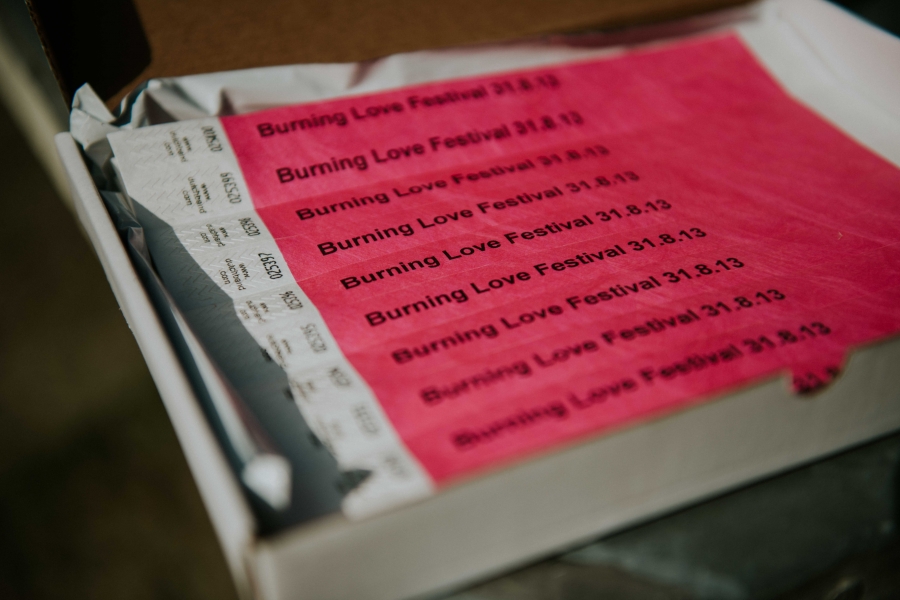 Burning Love Festival 31.8.13
Burning Love Festival 31.8.13
Burning Love Festival 31.8.13
Burning Love Festival 31.8.13
Burning Love Festival 31.8.13
Burning Love Festival 31.8.13
Burning Love Festival 31.8.13
Burning Love Festival 31.8.13
Burning Love Festival 31.8.13
025399
www.
outchband
.com
025397
www.
outchband
.com